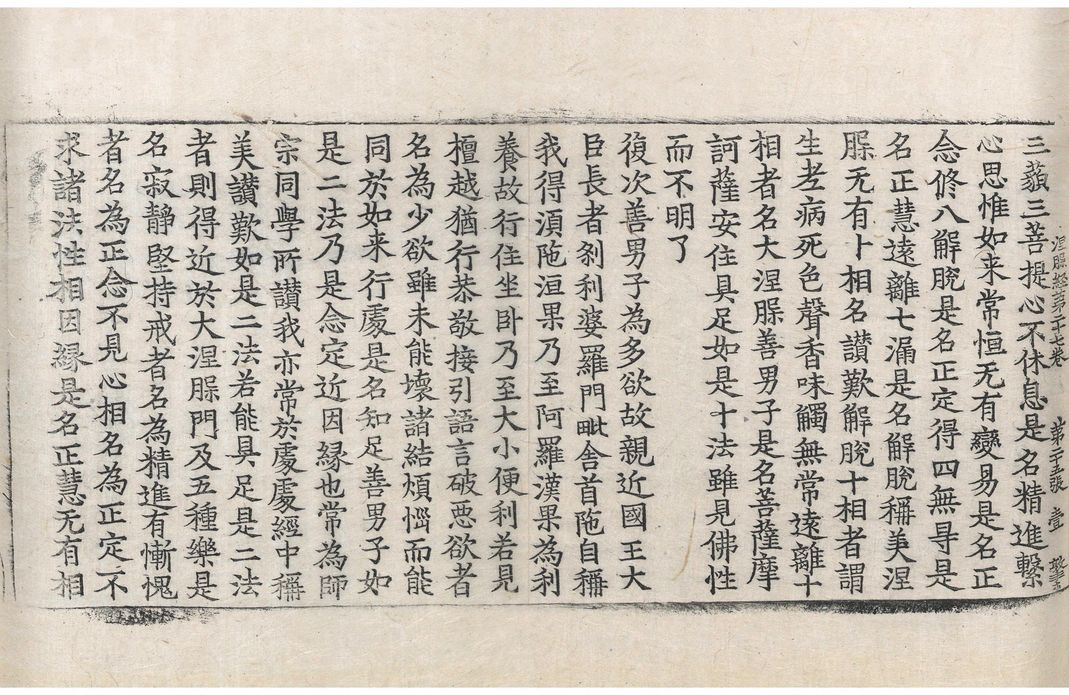 涅槃経苐二十七卷 苐二十五張 壹
三藐三菩提心不休息是名精進繫
心思惟如来常恒无有變易是名正
念俢八解脫是名正定得四無㝵是
名正慧遠離七漏是名解脫稱美涅
槃无有十相名讃歎解脫十相者謂
生老病死色聲香味觸無常遠離十
相者名大涅槃善男子是名菩薩摩
訶薩安住具足如是十法雖見佛性
而不明了
復次善男子為多欲故親近國王大
臣長者刹利婆羅門毗舍首陁自稱
我得湏陁洹果乃至阿羅漢果為利
養故行住坐卧乃至大小便利若見
檀越猶行恭敬接引語言破惡欲者
名為少欲雖未能壞諸結煩惱而能
同於如来行處是名知足善男子如
是二法乃是念定近因縁也常為師
宗同學所讃我亦常於處處經中稱
美讃歎如是二法若能具足是二法
者則得近於大涅槃門及五種樂是
名寂静堅持戒者名為精進有慚愧
者名為正念不見心相名為正定不
求諸法性相因縁是名正慧无有相